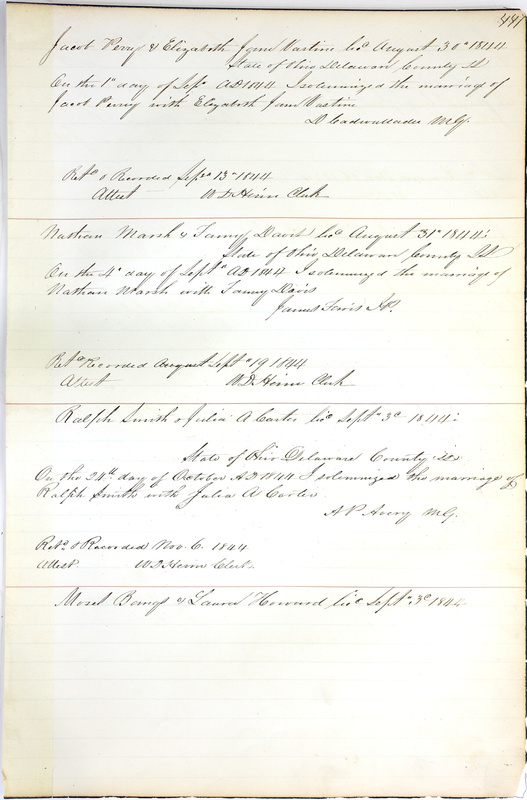 441
Jacob Perry & Elizabeth Jane Vastine lic August 30th 1844
State of Ohio Delaware County SS
On the 1st day of Sept AD 1844 I solemnized the marriag of
Jacob Perry with Elizabeth Jane Vastine
D Cadwallader M.G.
Retd & Recorded Sept 13th 1844
Attest W D Heim Clerk
Nathan Marsh & Fanny Davis lic August 31st 1844
State of Ohio Delaware County SS
On the 4th day of Sept AD 1844 I solemnized the marriag of
Nathan Marsh with Fanny Davis
James JP.
Retd Recorded August Sept 19 1844
Attest W.D. Heim Clerk
Ralph Smith & Julia A Carter lic Sept 3d 1844
State of Ohio Delaware County SS
On the 24th day of October AD 1844 I solemnized the marriage of
Ralph Smith with Julia A Carter
A P Avery M.G.
Retd & Recorded Nov. 6. 1844
Attest. W D Heim Clerk.
Moses Bangs & Laura Howard lic Sept 3d 1844